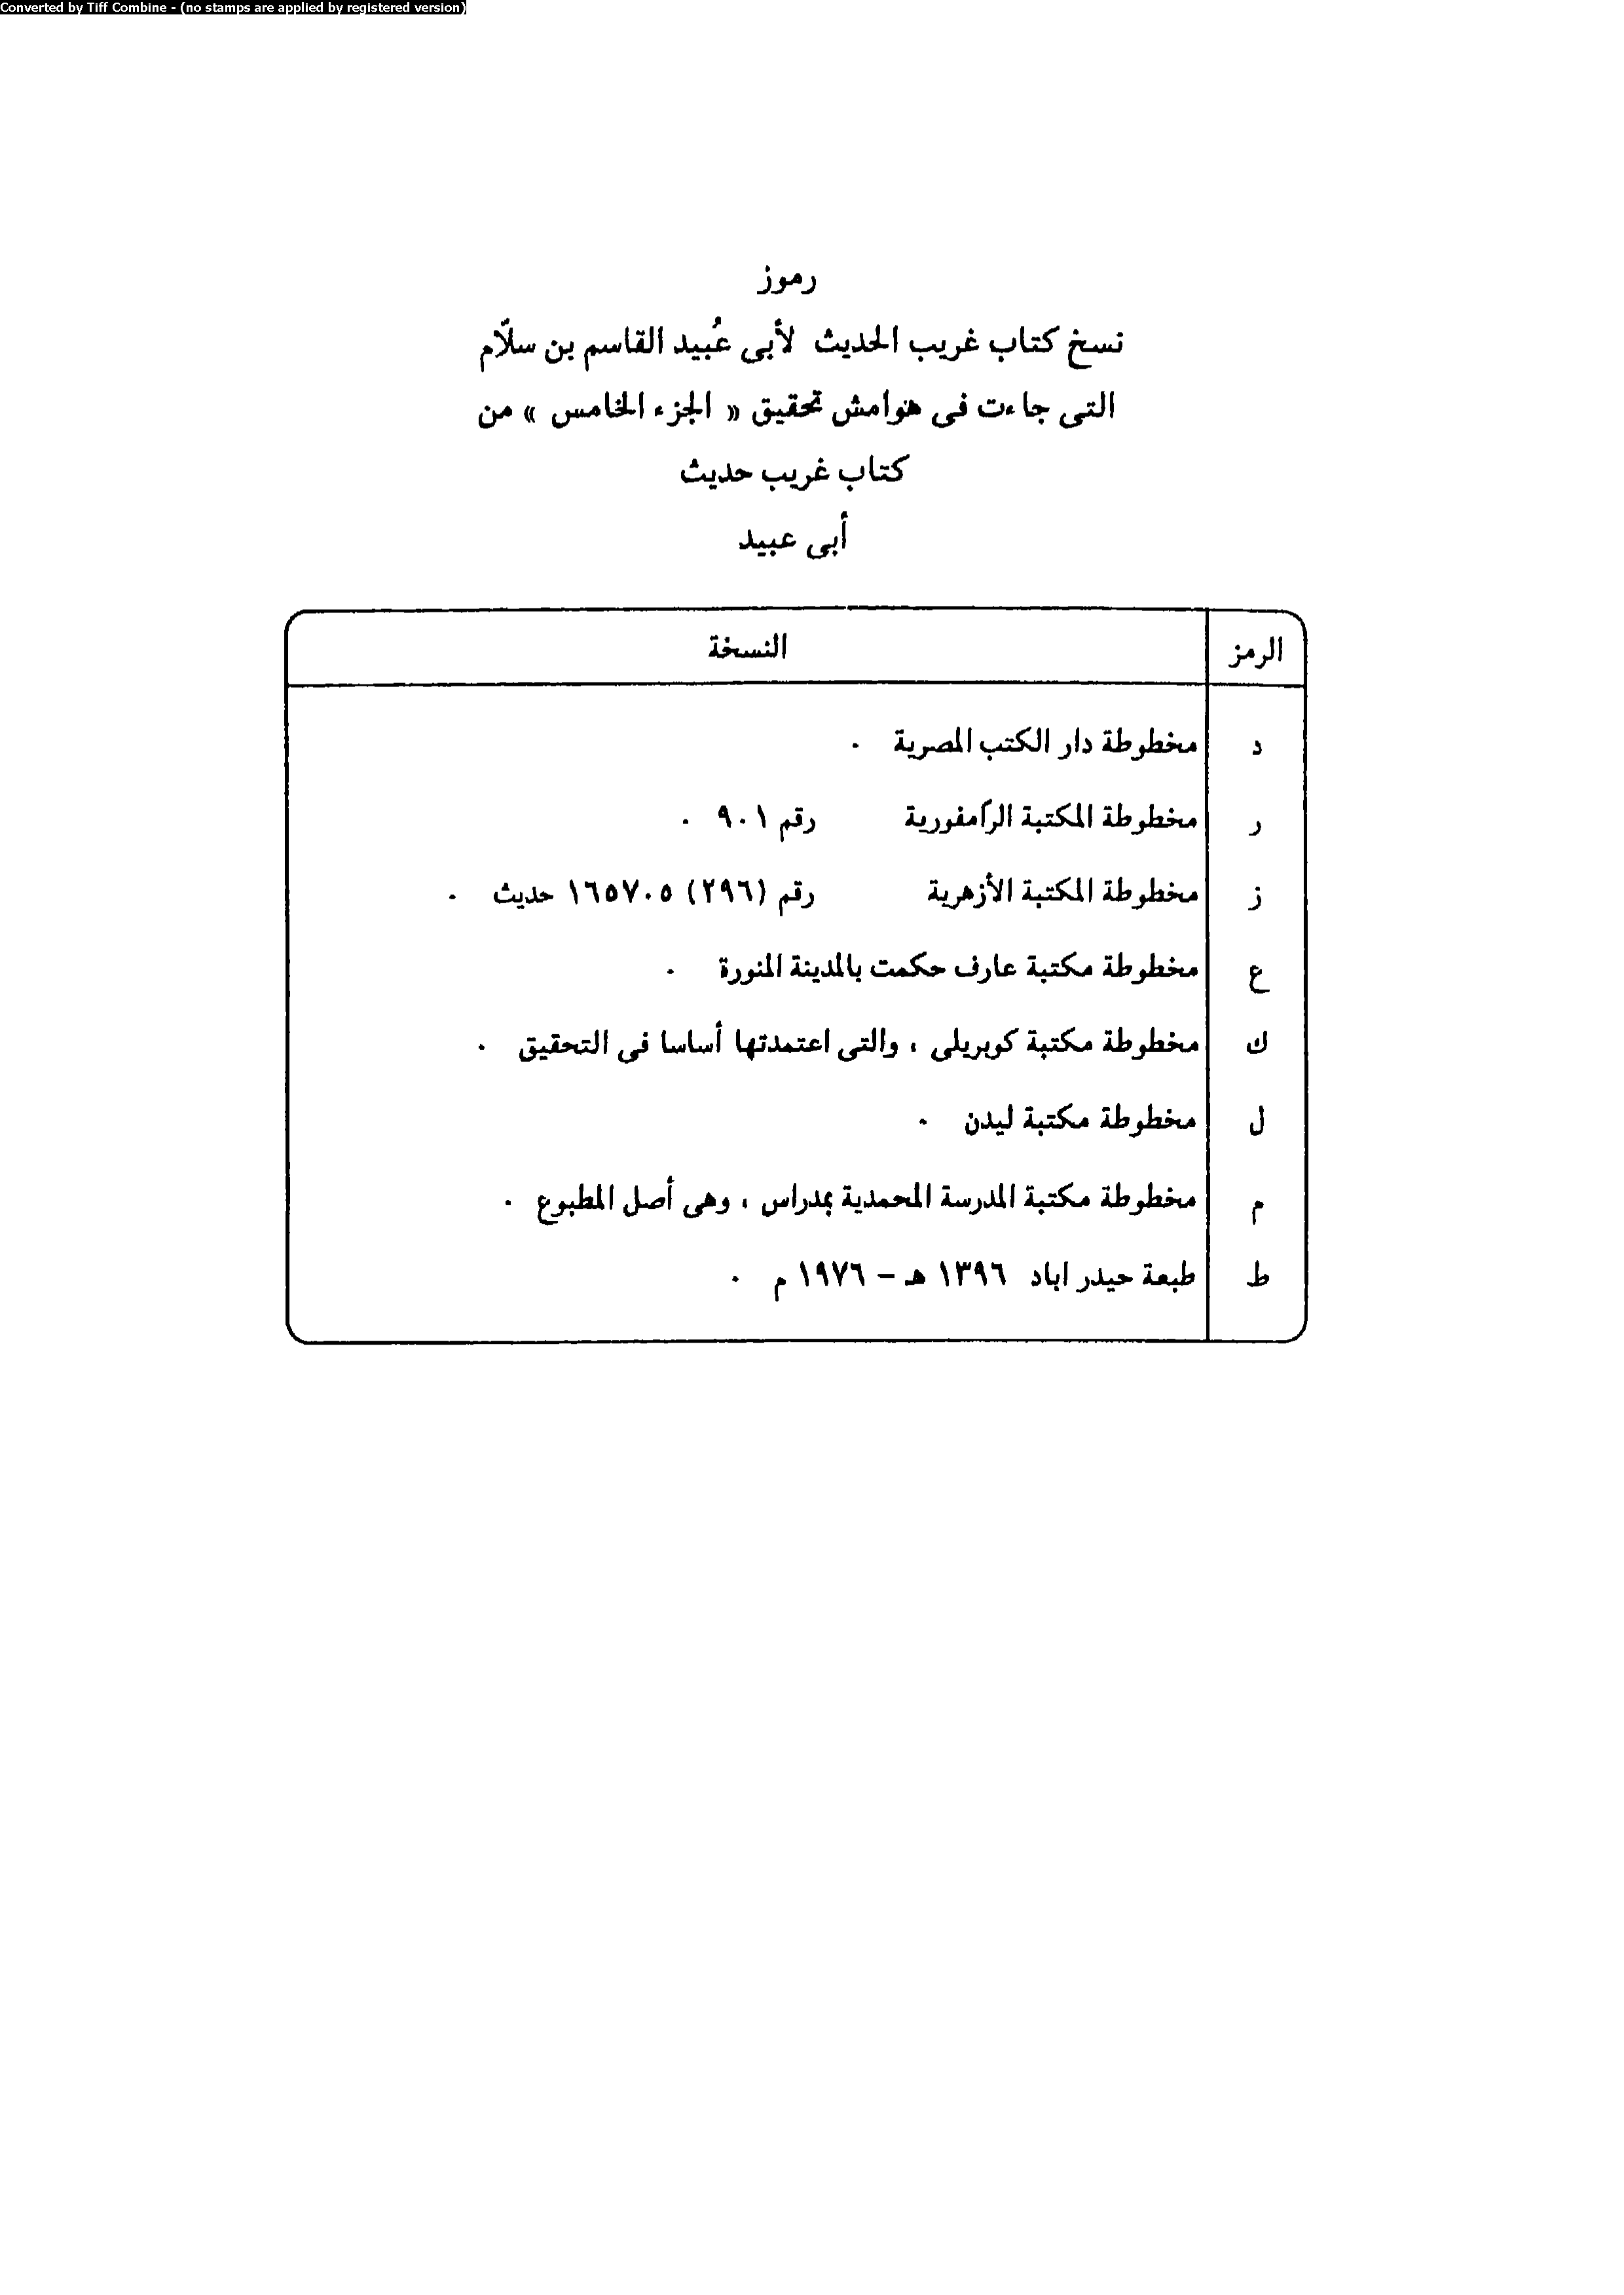 Converted by Tiff Combine - (no stamps are applied by registered version)
رموز
نسخ كتاب غريب الحديث لأبى عُبيد القاسم بن سلاّم
التى جاءت فى هوامش تحقيق « الجزء الخامس » من
كتاب غريب حديث
أبى عبيد
الرمز النسخة
د مخطوطة دار الكتب المصرية .
ر مخطوطة المكتبة الرامفورية رقم ٩٠١ .
ز مخطوطة المكتبة الأزهرية رقم (٢٩٦) ١٦٥٧٠٥ حديث .
ع مخطوطة مكتبة عارف حكمت بالمدينة المنورة .
ك مخطوطة مكتبة كوبريلى ، والتى اعتمدتها أساسا فى التحقيق .
ل مخطوطة مكتبة ليدن .
م مخطوطة مكتبة المدرسة المحمدية بمدراس ، وهى أصل المطبوع .
ط طبعة حيدر اباد ١٣٩٦ هـ – ١٩٧٦ م .